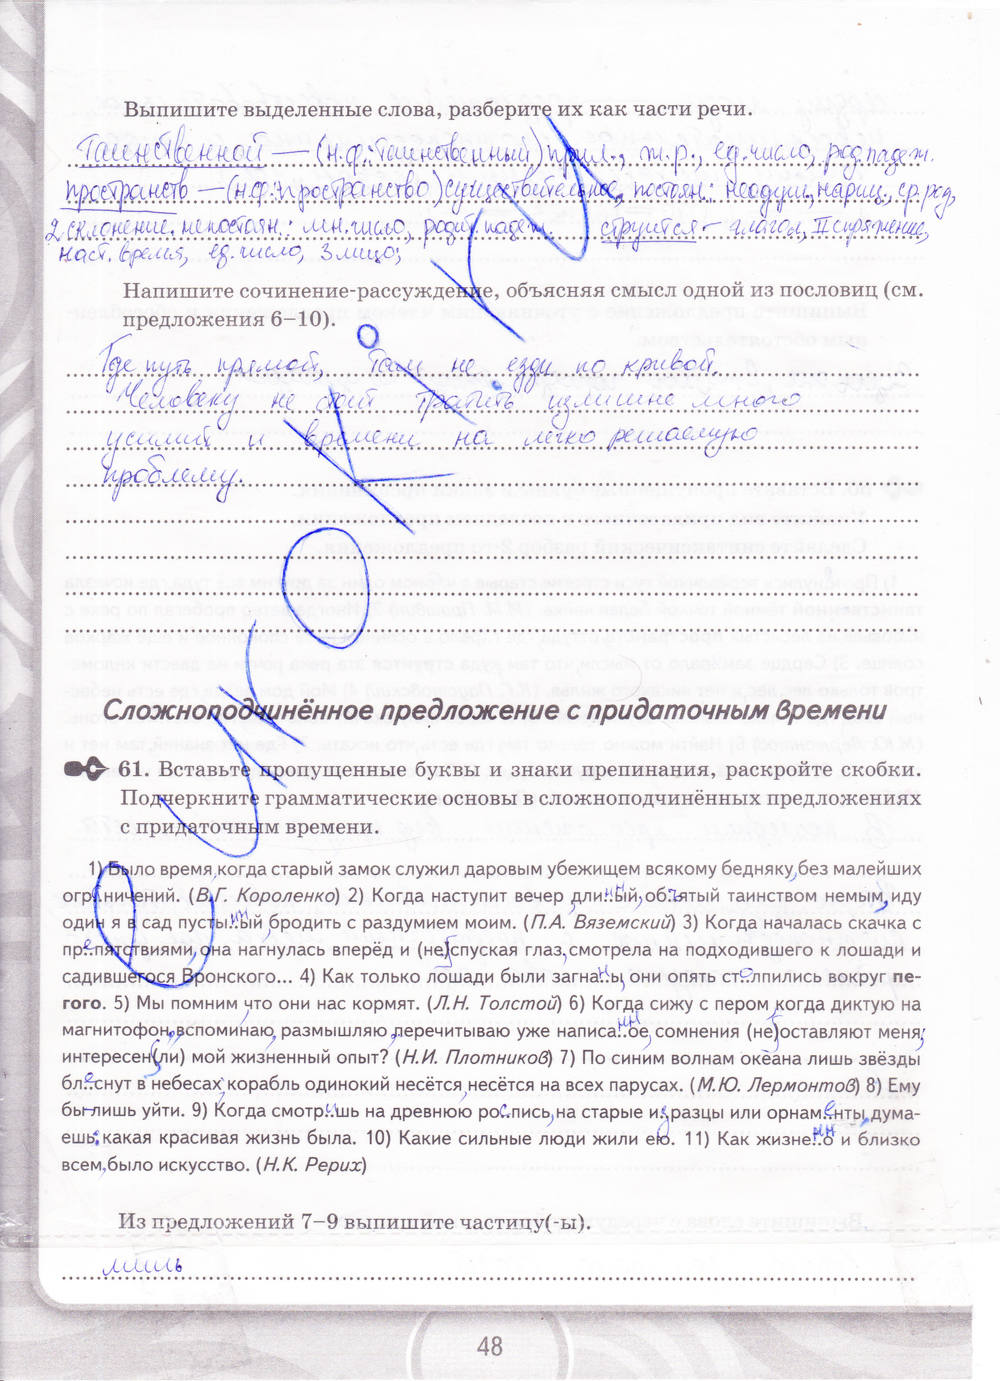 Выпишите выделенные слова, разберите их как части речи.
Таинственной — (н.ф.: таинственный) прил., ж.р., ед.число, род.падеж.
пространств — (н.ф.: пространство) существительное, постян.: неодуш, нариц., ср. род,
2 склонение, непостоян.: мн.число, родит.падеж. струится — глагол, II спряжение,
наст. время, ед.число, 3 лицо;
Напишите сочинение-рассуждение, объясняя смысл одной из пословиц (см.
предложения 6–10).
Где путь прямой, там не езди по кривой.
Человеку не стоит тратить излишне много
усилий и времени на легко решаемую
проблему.
Сложноподчинённое предложение с придаточным времени
61. Вставьте пропущенные буквы и знаки препинания, раскройте скобки.
Подчеркните грамматические основы в сложноподчинённых предложениях
с придаточным времени.
1) Было время, когда старый замок служил даровым убежищем всякому бедняку, без малейших
огр..ничений. (В.Г. Короленко) 2) Когда наступит вечер длинный, объятый таинством немым, иду
один я в сад пустынный, бродить с раздумием моим. (П.А. Вяземский) 3) Когда началась скачка с
препятствиями, она нагнулась вперёд и (не)спуская глаз, смотрела на подходившего к лошади и
садившегося Вронского... 4) Как только лошади были загнаны, они опять столпились вокруг пе-
гого. 5) Мы помним, что они нас кормят. (Л.Н. Толстой) 6) Когда сижу с пером, когда диктую на
магнитофон, вспоминаю, размышляю, перечитываю уже написанное, сомнения (не)оставляют меня:
интересен(ли) мой жизненный опыт? (Н.И. Плотников) 7) По синим волнам океана лишь звёзды
блеснут в небесах, корабль одинокий несётся, несётся на всех парусах. (М.Ю. Лермонтов) 8) Ему
бы-лишь уйти. 9) Когда смотришь на древнюю роспись, на старые изразцы или орнаменты, дума-
ешь: какая красивая жизнь была. 10) Какие сильные люди жили ею. 11) Как жизненно и близко
всем, было искусство. (Н.К. Рерих)
Из предложений 7–9 выпишите частицу(-ы).
лишь
48